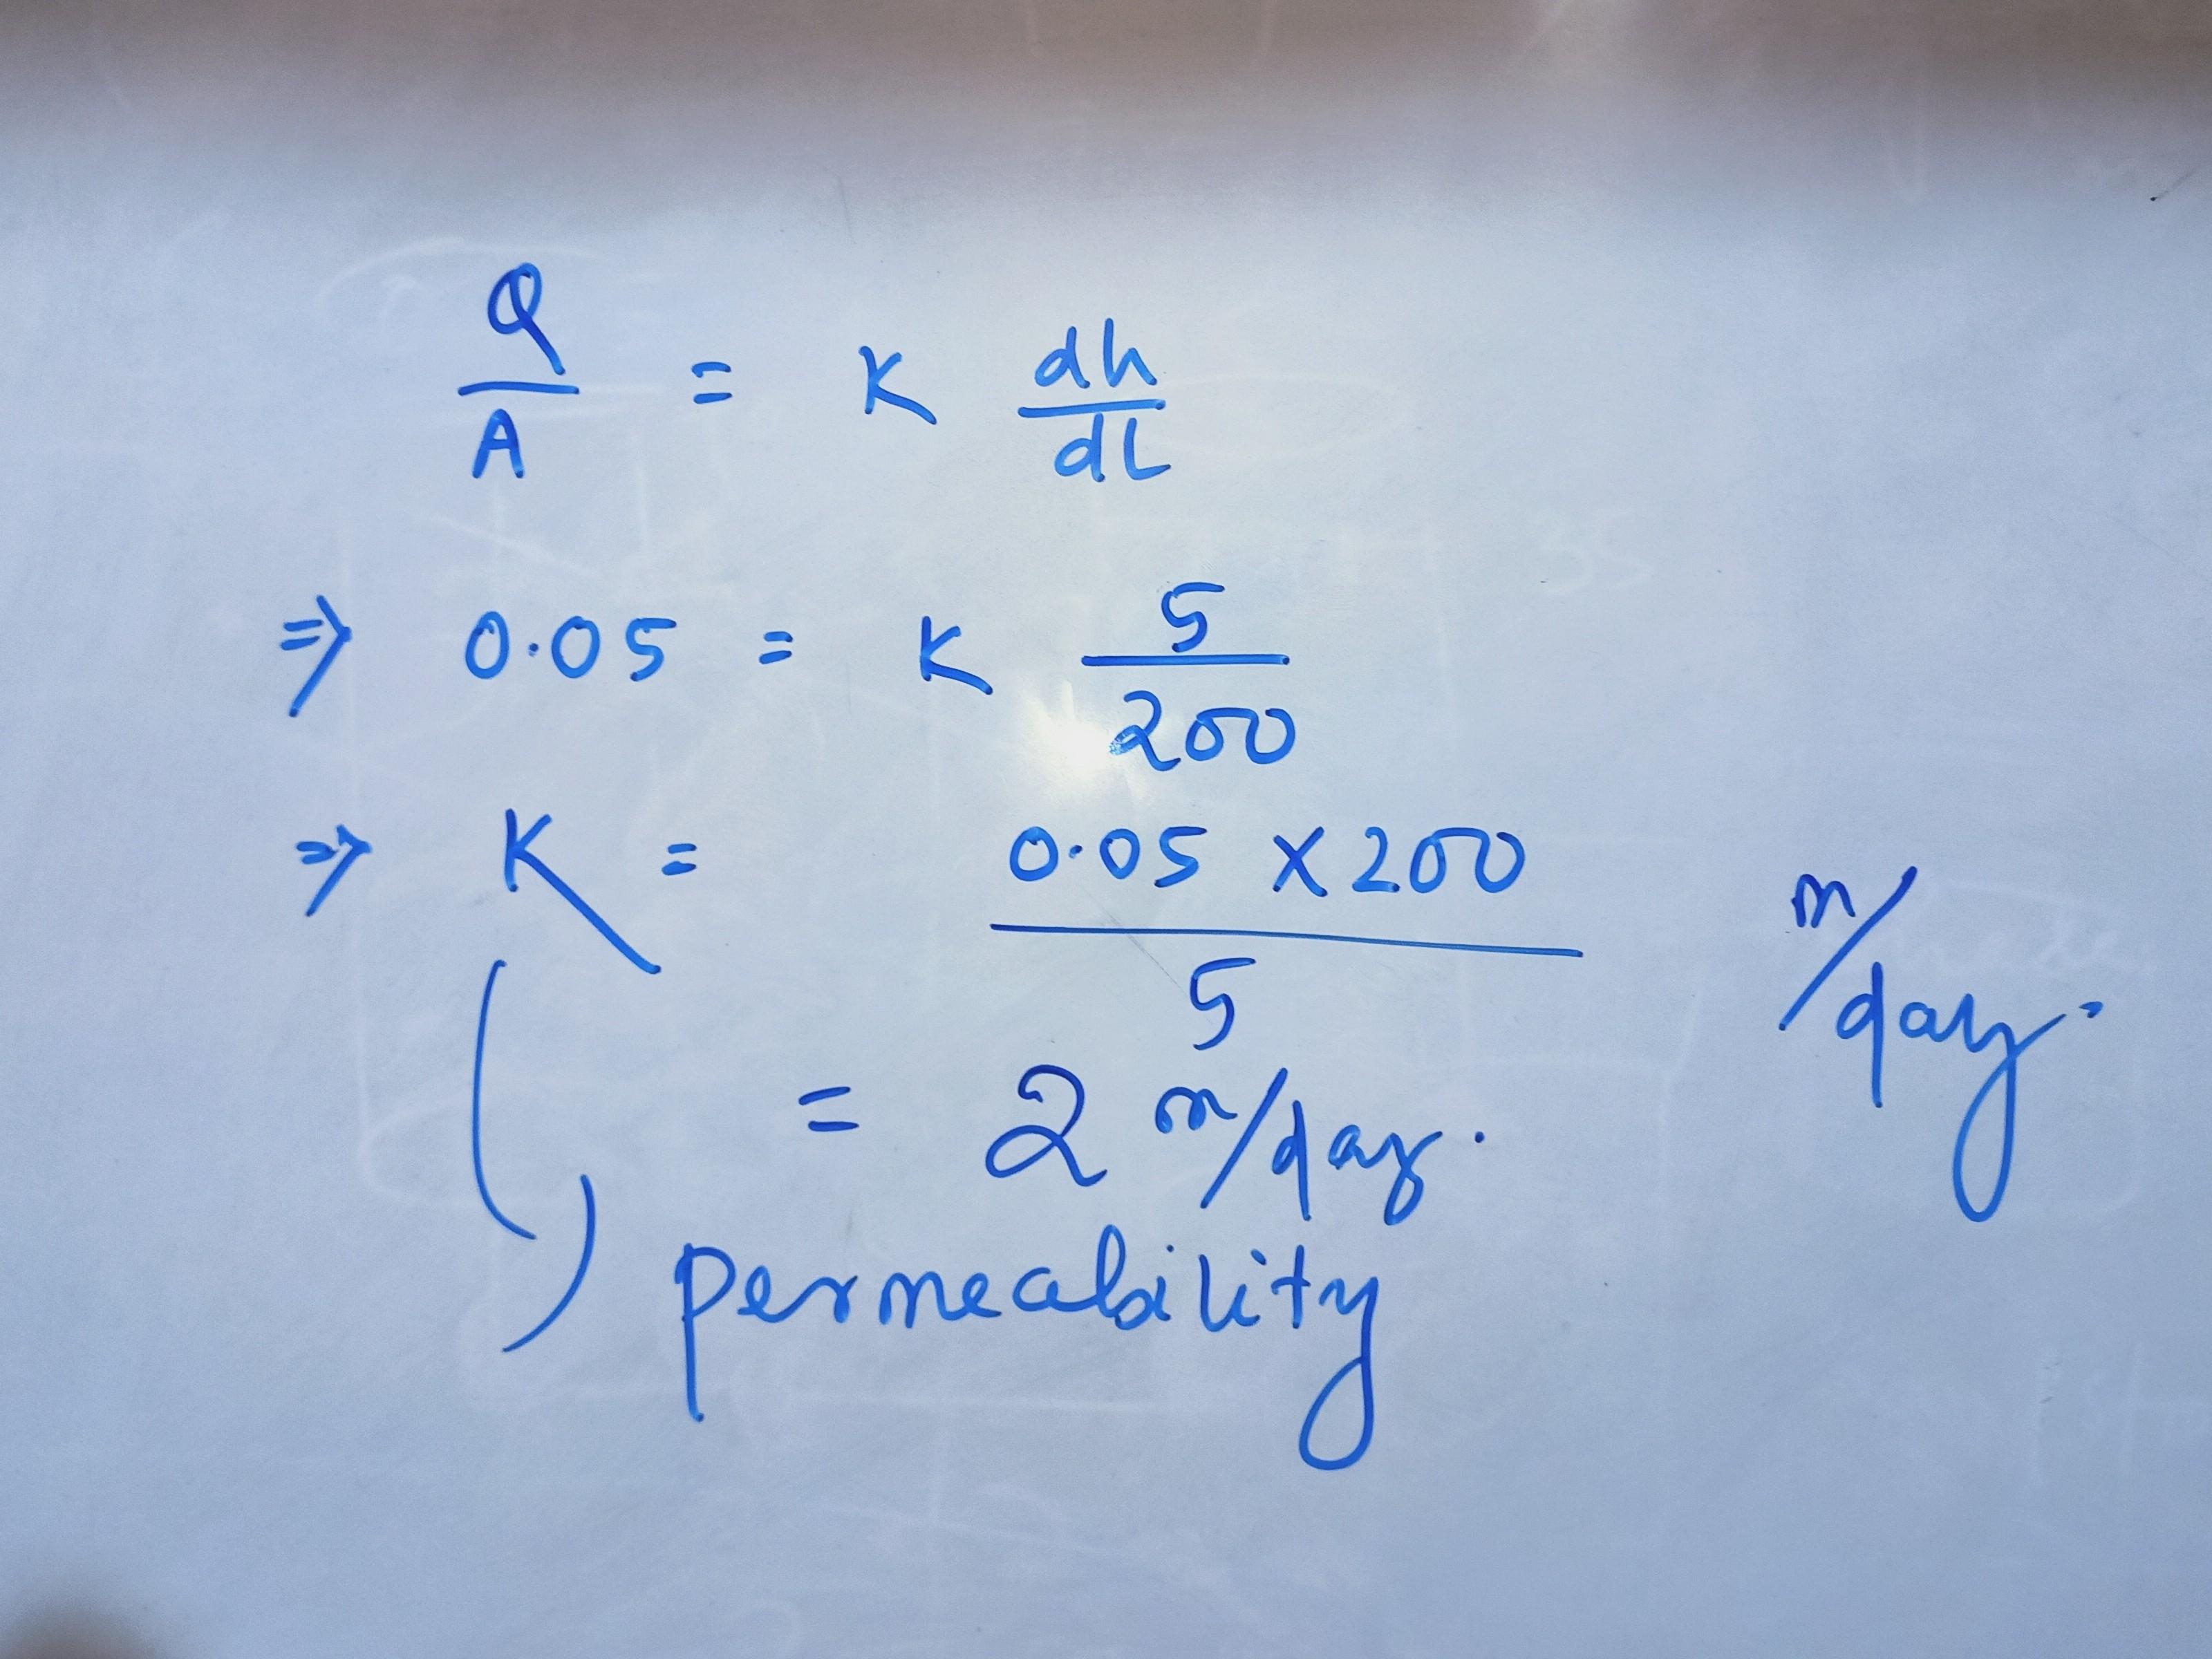 Q/A = K dh/dL
⇒ 0.05 = K 5/200
⇒ K = 0.05 × 200 / 5 m/day.
= 2 m/day.
permeability